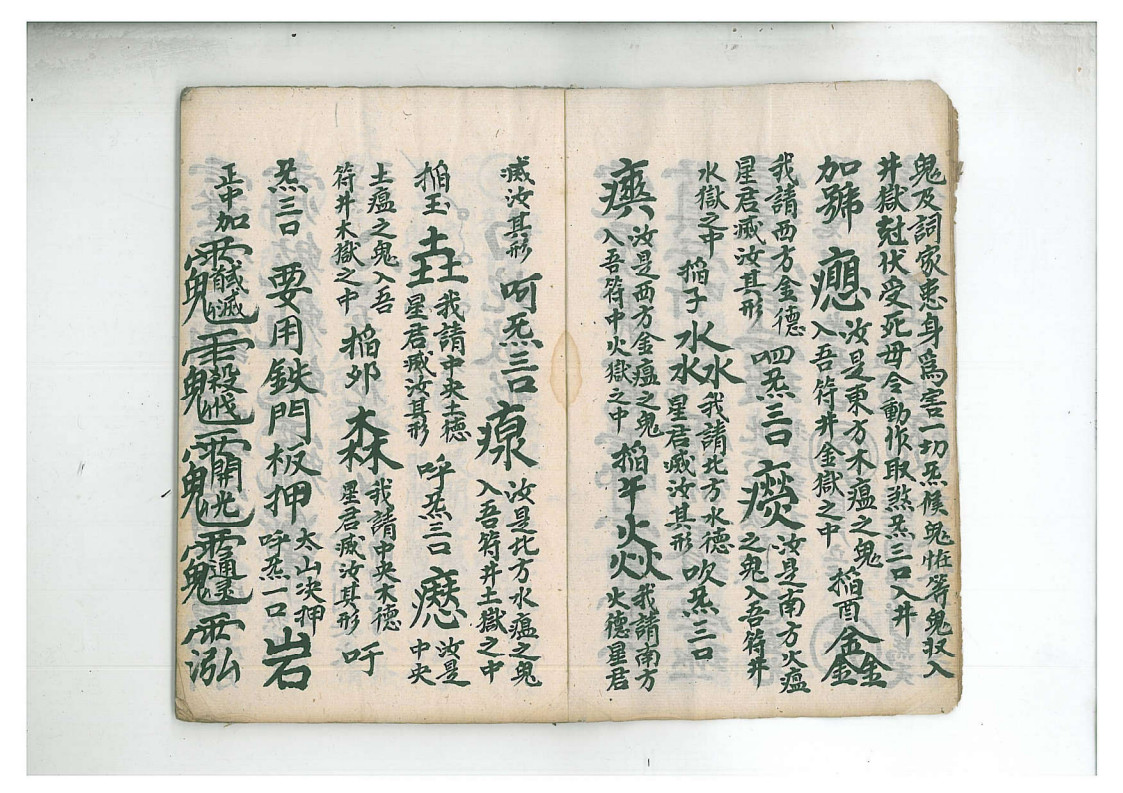 鬼及詞家患身為害一切炁候鬼怪等鬼収入
井獄尅伏受死毋令動作取煞炁三口入井
加號 汝是東方木瘟之鬼入吾符井金獄之中 稲酉鑫
我請西方金德星君滅汝其形 呬炁三口 汝是南方火瘟之鬼入吾符井
水獄之中 稲子 我請北方水德星君滅汝其形 吹炁三口
汝是西方金瘟之鬼入吾符中火獄之中 稲午焱 我請南方火德星君
滅汝其形 呵炁三口 汝是北方水瘟之鬼入吾符井土獄之中
稲玉垚 我請中央土德星君滅汝其形 呼炁三口 汝是中央
土瘟之鬼入吾符井木獄之中 稲卯森 我請中央木德星君滅汝其形 吁
炁三口 要用鉄門板押 太山决押呼炁一口 岩
正中加